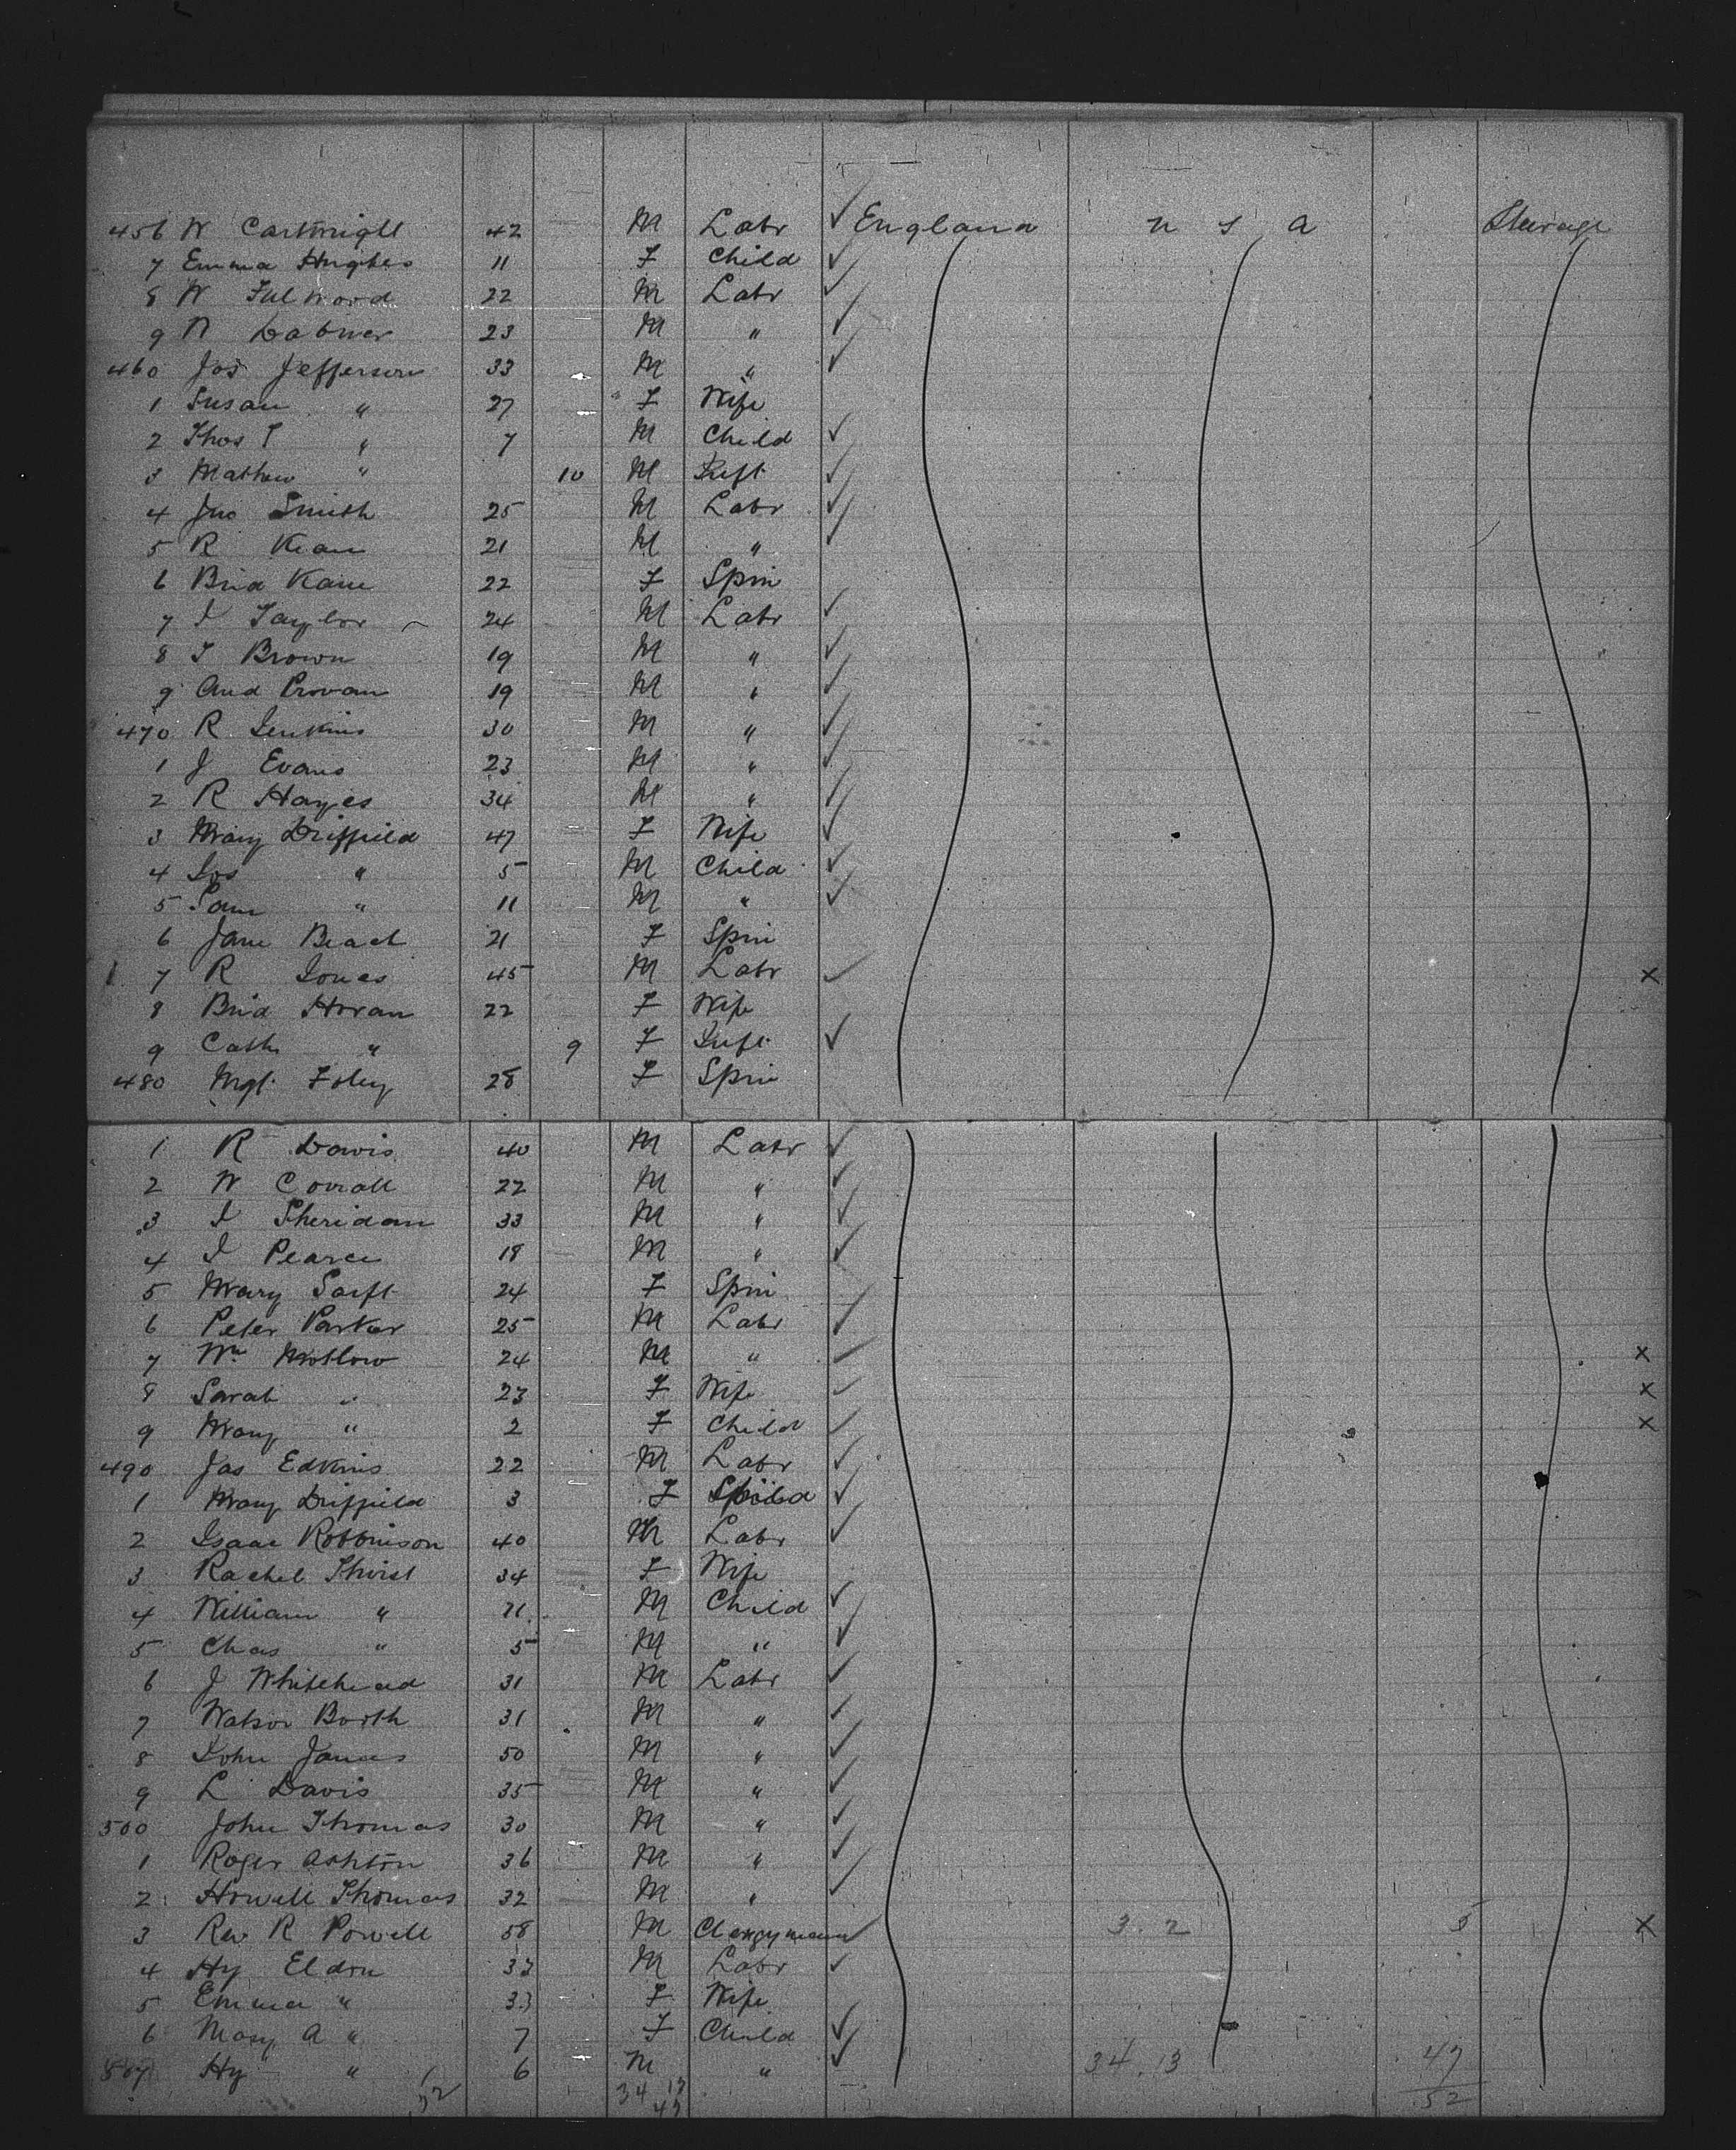 456 W Cartwright 42 M Labr ✓ England U S A Steerage
7 Emma Hughes 11 F Child ✓
8 W Fulwood 22 M Labr ✓
9 N Dabner 23 M " ✓
460 Jos Jefferson 33 M " ✓
1 Susan " 27 F Wife
2 Thos T " 7 M Child ✓
3 Mathew " 10 M Inft ✓
4 Jno Smith 25 M Labr ✓
5 R Kean 21 M " ✓
6 Brid Kane 22 F Spin
7 J Taylor 24 M Labr ✓
8 T Brown 19 M " ✓
9 And Provan 19 M " ✓
470 R Jenkins 30 M " ✓
1 J Evans 23 M " ✓
2 R Hayes 34 M " ✓
3 Mary Driffield 47 F Wife ✓
4 Jos " 5 M Child ✓
5 Sam " 11 M " ✓
6 Jane Beach 21 F Spin
7 R Jones 45 M Labr ✓ x
8 Brid Horan 22 F Wife
9 Cath " 9 F Inft ✓
480 Mgt Foley 28 F Spin
1 R Davis 40 M Labr ✓
2 W Corrall 22 M " ✓
3 J Sheridan 33 M " ✓
4 J Pearce 18 M " ✓
5 Mary 24 F Spin
6 Peter Parker 25 M Labr ✓
7 Wm Motlow 24 M " ✓ x
8 Sarah " 23 F Wife ✓ x
9 Mary " 2 F Child ✓ x
490 Jas Edkins 22 M Labr ✓
1 Mary Driffield 3 F ✓
2 Isaac Robbinson 40 M Labr ✓
3 Rachel 34 F Wife
4 William " M Child ✓
5 Chas " 5 M " ✓
6 J Whitehead 31 M Labr ✓
7 Watson Booth 31 M " ✓
8 John James 50 M " ✓
9 L Davis 35 M " ✓
500 John Thomas 30 M " ✓
1 Roger Ashton 36 M " ✓
2 Howell Thomas 32 M " ✓
3 Rev R Powell 58 M Clergyman ✓ 3.2 5 x
4 Hy Eldon 33 M Labr ✓
5 Emma " 33 F Wife
6 Mary A " 7 F Child ✓
507 Hy " 6 M " ✓ 34.13 47
52 34 13 52
47